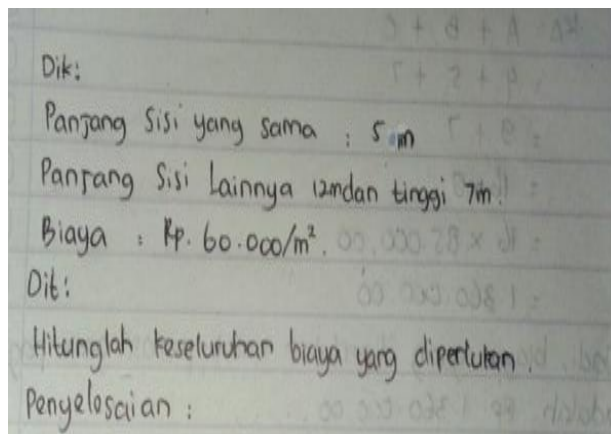 Dik:
Panjang Sisi yang sama : 5 m
Panjang Sisi Lainnya 12m dan tinggi 7m.
Biaya : Rp. 60.000/m².
Dit:
Hitunglah keseluruhan biaya yang diperlukan.
Penyelosaian :